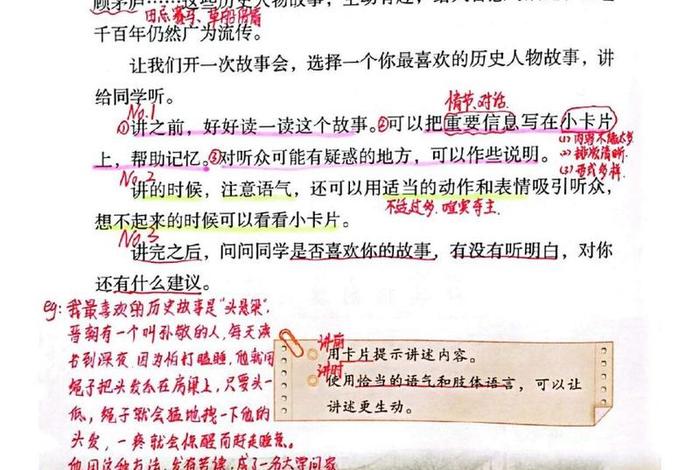 顾茅庐……这些历史人物故事，生动有趣，
田忌赛马、草船借箭
千百年仍然广为流传。
让我们开一次故事会，选择一个你最喜欢的历史人物故事，讲
给同学听。
No.1
情节、对话
①讲之前，好好读一读这个故事。②可以把重要信息写在小卡片
上，帮助记忆。③对听众可能有疑惑的地方，可以作些说明。
(1)内容不能太多
(2)排版清晰
(3)形式多样
No.2
讲的时候，注意语气，还可以用适当的动作和表情吸引听众，
不过多，喧宾夺主
想不起来的时候可以看看小卡片。
No.3
讲完之后，问问同学是否喜欢你的故事，有没有听明白，对你
还有什么建议。
eg:我最喜欢的历史故事是“头悬梁”，
晋朝有一个叫孙敬的人，每天读
书到深夜，因为怕打瞌睡，他就用
绳子把头发系在房梁上，只要头一
低，绳子就会猛地拽一下他的
头发，一疼就会醒而赶走睡意。
他用这种方法，发奋苦读，成了一名大学问家
讲前
用卡片提示讲述内容。
讲时
使用恰当的语气和肢体语言，可以让
讲述更生动。